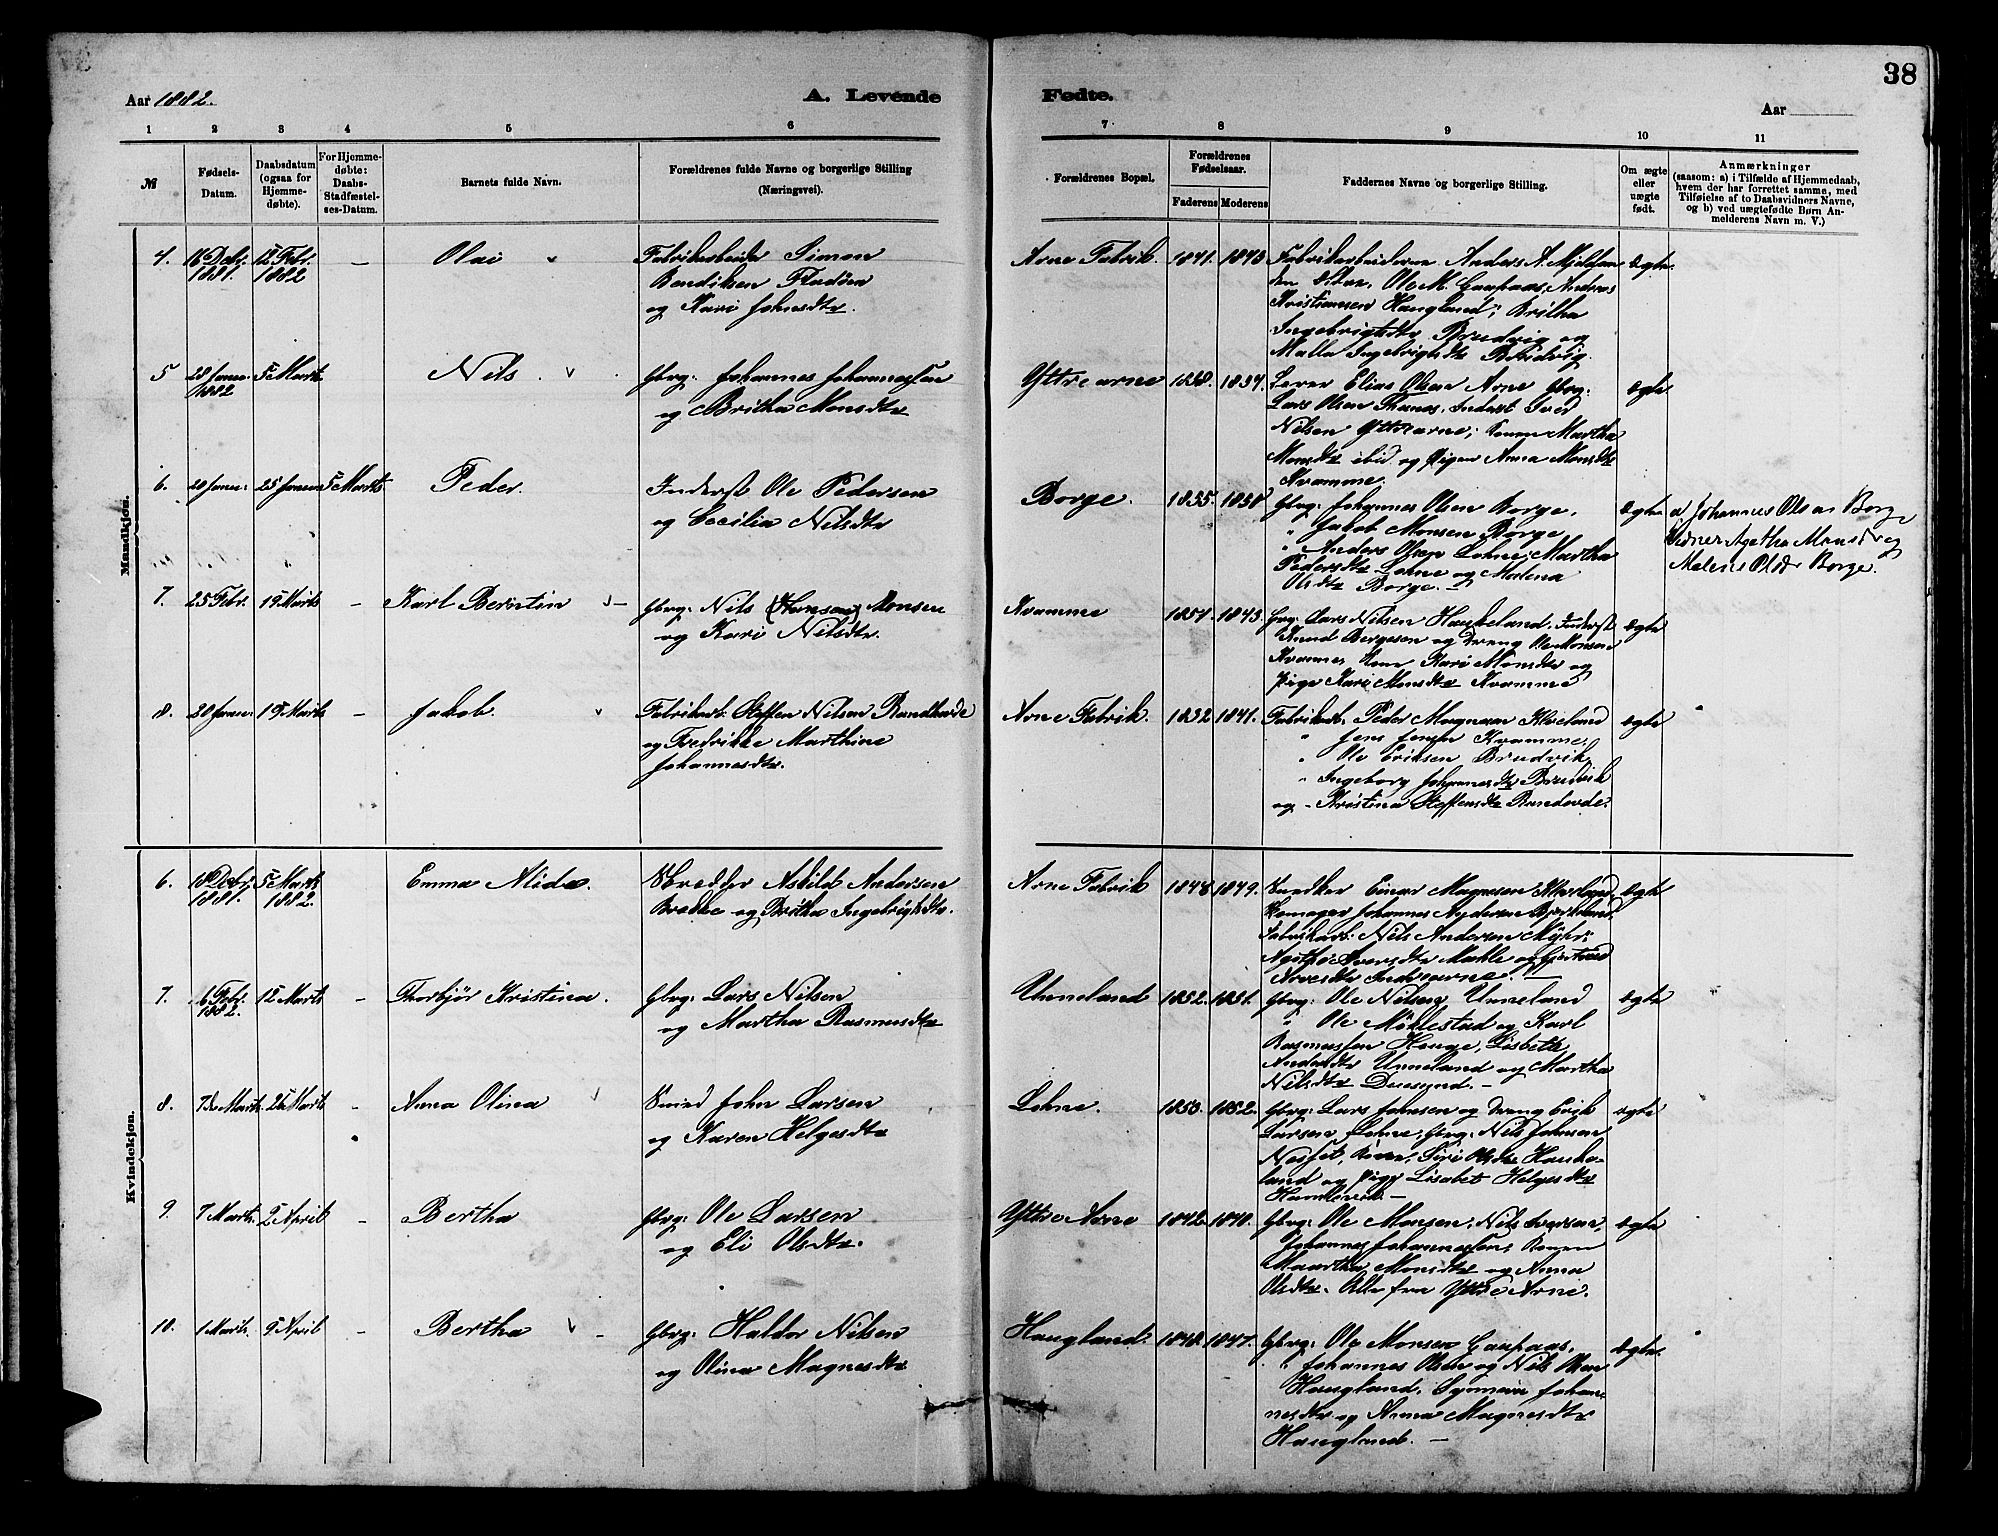 38
Aar 1882.
A. Levende
Fødte.
Aar
1 2 3 4 5 6
7 8 9 10 11
№
Fødsels-Datum.
Daabsdatum (ogsaa for Hjemmedøbte).
For Hjemmedøbte: Daabs-Stadfæstelses-Datum.
Barnets fulde Navn.
Forældrenes fulde Navne og borgerlige Stilling (Næringsvei).
Forældrenes Bopæl.
Forældrenes Fødselsaar.
Faderens Moderens
Faddernes Navne og borgerlige Stilling.
Om ægte eller uægte født.
Anmærkninger
(saasom: a) i Tilfælde af Hjemmedaab, hvem der har forrettet samme, med Tilføielse af to Daabsvidners Navne, og b) ved uægtefødte Børn Anmelderens Navn m. V.)
Mandkjøn.
4. 16 Decbr 1881. 12 Febr. 1882 – Olai
Fabrikarbeider Simon
Bendiksen
og Kari Johnsdtr.
Arne Fabrik. 1841. 1843
Fabrikarbeiderne Anders A.
Ole M. Gaupaas, Andreas
Kristiansen Haugland; Britha
Ingebrigtsdtr Brudvig og
Malla Ingebrigtsdtr Brudvig.
ægte
5 28 Januar 1882 5 Marts Nils
Gbrg: Johannes Johannessen
og Britha Monsdtr
Ytrearne 1834.
Lærer Elias Olsen Arne Gbrg:
Lars Olsen Inderst Iver
Nilsen Yttrearne; Konen Martha
Monsdtr ibid og Pigen Anna Monsdtr
Kvamme.
ægte
6. 20 Januar 25 Januar 5 Marts. Peder.
Inderst Ole Pedersen
og Cecilia Nilsdtr
Borge. 1855.
Gbrg: Johannes Olsen Borge,
" Jakob Monsen Borge
" Anders Olsen Lohne; Martha
Pedersdtr Lohne og Malena
Olsdtr Borge. –
ægte
a Johannes Olsen Borge
Vidner Agatha Monsdtr og
Malene Olsdtr Borge.
7. 25 Febr. 19 Marts – Karl Berntin –
Gbrg: Nils (Hansen) Monsen
og Kari Nilsdtr.
Kvamme 1843.
Gbrg: Lars Nilsen Haukeland. Inderst
Knud Bergesen og Dreng Ole Monsen
Kvamme, Kone Kari Monsdtr og
Pige Kari Monsdtr Kvamme
ægte
8. 20 Januar 19 Marts – Jakob.
Fabrikarb: Steffen Nilsen
og Fredrikke Marthine
Johannesdtr.
Arne Fabrik. 1832 1841.
Fabrikarb. Peder Magnesen
" Jens Jensen Kvamme,
" Ole Eriksen Brudvik,
" Ingeborg Johannesdtr Brudvik
og " Kristina Steffensdtr
ægte
Kvindekjøn.
6. 18 Decbr 1881. 5 Marts 1882. – Emma Alida.
Skrædder Askild Andersen
og Britha Ingebrigtsdtr.
Arne Fabrik 1848 1849.
Snedker Einar Magnesen
Johannes
Fabrikarb: Nils Andersen
og Gjertrud
Indrearne. –
ægte
7. 6 Febr. 1882. 12 Marts – Thorbjør Kristina.
Gbrg: Lars Nilsen
og Martha Rasmusdtr
Unneland 1852. 1851.
Gbrg: Ole Nilsen Unneland
" Ole Møklestad og Karl
Rasmussen Hauge, Lisbeth
Andersdtr Unneland og Martha
Nilsdtr –
ægte
8. 7de Marts. 26 Marts – Anna Olina
Smed John Larsen
og Karen Helgesdtr
Lohne. 1852.
Gbrg: Lars Johnsen og Dreng Erik
Larsen Lohne, Gbrg: Nils Johnsen
Siri Olsdtr Hauke-
land og Pige Lisabet Helgesdtr
–
ægte
9. 7 Marts. 2 April – Bertha
Gbrg: Ole Larsen
og Eli Olsdtr.
Yttre Arne 1842 1840.
Gbrg: Ole Monsen, Nils Iversen,
Johannes Johannessen, Konen
Maartha Monsdtr og Anna
Olsdtr. Alle fra Yttre Arne.
ægte
10. 1 Marts. 9 April – Bertha –
Gbrg: Haldor Nilsen
og Olina Magnesdtr
Haugland. 1848. 1847.
Gbrg: Ole Monsen Gaupaas,
" Johannes Olsen og Nils Olsen
Haugland. Synneva Johan-
nesdtr og Anna Magnesdtr
Haugland. –
ægte